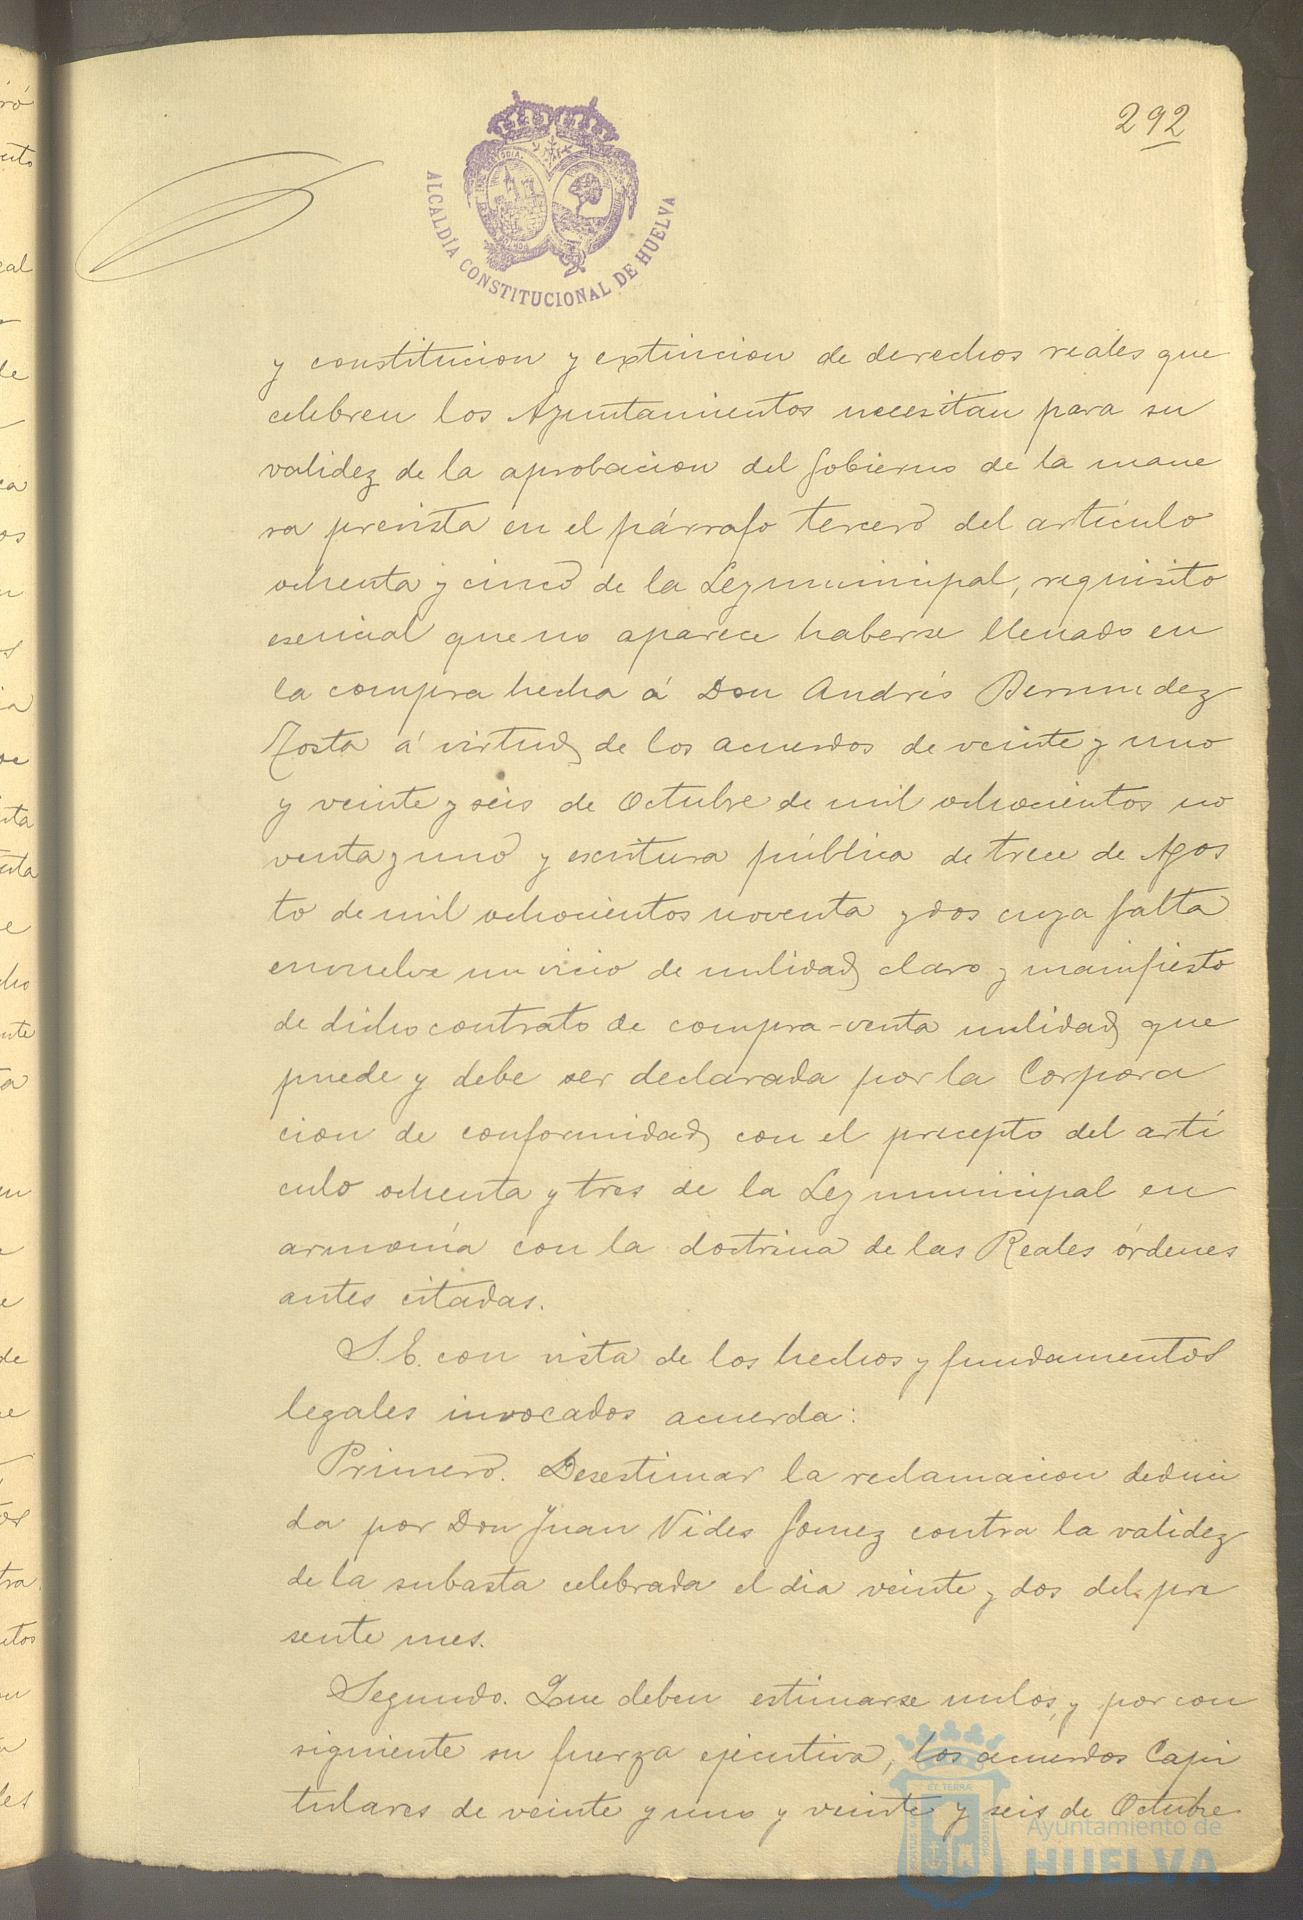 292
ALCALDÍA CONSTITUCIONAL DE HUELVA
y constitucion y extincion de derechos reales que
celebren los Ayuntamientos necesitan para su
validez de la aprobacion del Gobierno de la mane
ra prevista en el párrafo tercero del artículo
ochenta y cinco de la Ley municipal, requisito
esencial que no aparece haberse llenado en
la compra hecha á Don Andrés Bermudez
á virtud de los acuerdos de veinte y uno
y veinte y seis de Octubre de mil ochocientos no
venta y uno y escritura pública de trece de Agos
to de mil ochocientos noventa y dos cuya falta
envuelve un vicio de nulidad claro y manifiesto
de dicho contrato de compra-venta nulidad que
puede y debe ser declarada por la Corpora
cion de conformidad con el precepto del artí
culo ochenta y tres de la Ley municipal en
armonía con la doctrina de las Reales órdenes
antes citadas.
S.E. con vista de los hechos y fundamentos
legales invocados acuerda:
Primero. Desestimar la reclamacion deduci
da por Don Juan Vides Gomez contra la validez
de la subasta celebrada el dia veinte y dos del pre
sente mes.
Segundo. Que deben estimarse nulos, y por con
siguiente su fuerza ejecutiva, los acuerdos Capi
tulares de veinte y uno y veinte y seis de Octubre
Ayuntamiento de
HUELVA